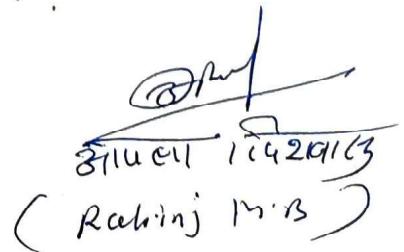 आपला विश्वासु
(Rakinj M.B)